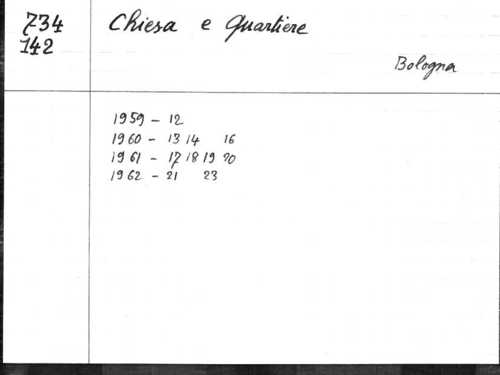 734 Chiesa e Quartiere
142
Bologna
1959 - 12
1960 - 13 14 16
1961 - 17 18 19 20
1962 - 21 23